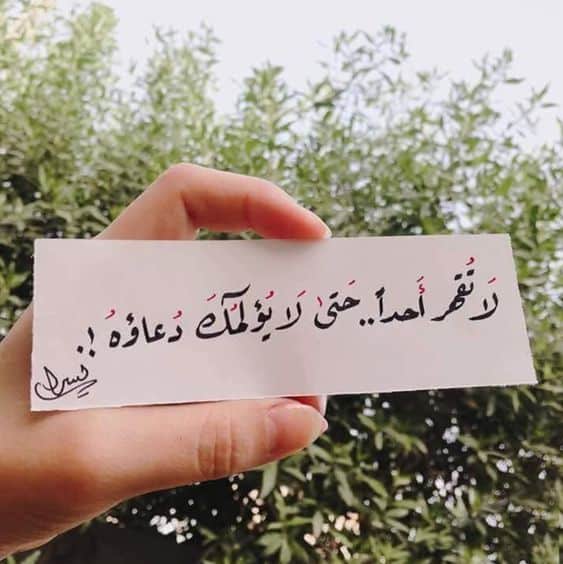 لَا تُقهر أَحداً.. حَتىٰ لَا يُؤلمُكَ دُعاؤهُ !.